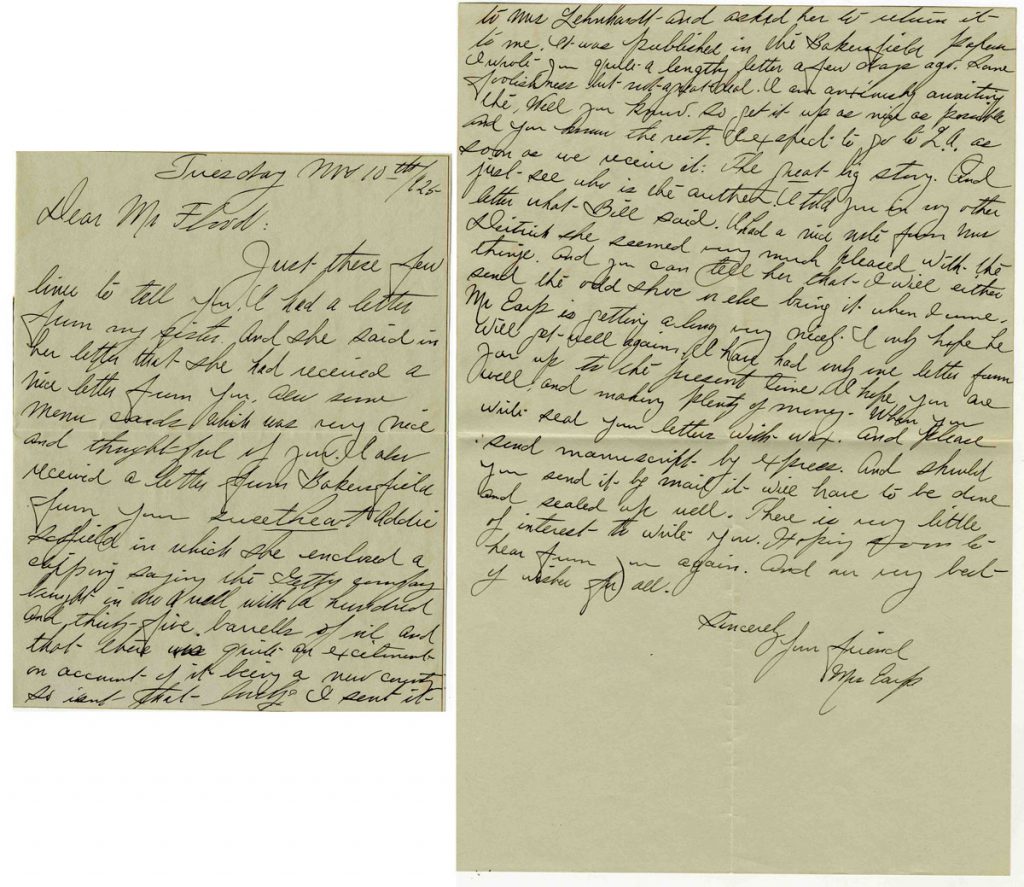 Tuesday Nov 10th/25
Dear Mr Flood:
Just these few
lines to tell you. I had a letter
from my sister and she said in
her letter that she had received a
nice letter from you, also some
menu cards which was very nice
and thoughtful of you. I also
received a letter from Bakersfield
from your sweetheart Addie
in which she enclosed a
clipping saying the Getty company
bought in a well with a hundred
and thirty-five barrells of oil and
that there was quite an excitment
on account of it being a new county
so isnt that lovely I sent it
to Mrs Lehnhardt and asked her to return it
to me. It was published in the Bakersfield paper
I wrote you quite a lengthy letter a few days ago. Some
foolishness but not a great deal. I am anxiously awaiting
the, well you know. So get it up as nice as possible
and you know the rest. I expect to go to L.A. as
soon as we receive it. The great big story. And
just see who is the author. I told you in my other
letter what Bill said. I had a nice note from Mrs
Deitrick she seemed very much pleased with the
things. And you can tell her that I will either
send the odd shoe or else bring it when I come.
Mr Earp is getting along very nicely. I only hope he
will get well again. I have had only one letter from
you up to the present time I hope you are
well and making plenty of money. When you
write seal your letters with wax. And please
send manuscript by express. And should
you send it by mail it will have to be done
and sealed up well. There is very little
of interest to write you. Hoping soon to
hear from you again. And our very best
of wishes for all.
Sincerely your friend
Mrs Earp